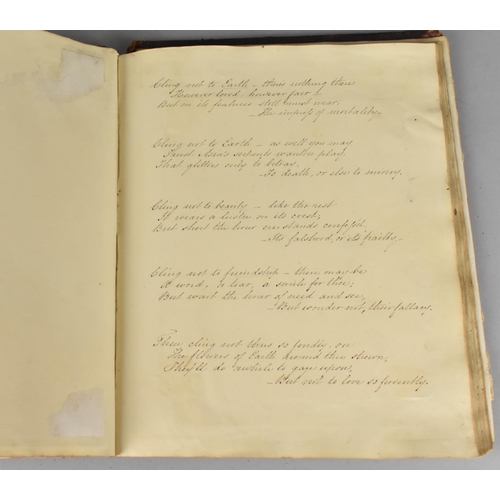 Cling not to Earth – theres nothing there
However loved, however fair
But on its features still must wear,
– The impress of mortality.
Cling not to Earth – as well you may
Trust Asia's serpents wanton play,
That glitters only to betray,
– To death, or else to misery.
Cling not to beauty – like the rest
It wears a lustre on its crest;
But short the hour ere stands confess'd,
– Its falshood, or its frailty.
Cling not to friendship – there may be
A word, a tear, a smile for thee;
But wait the hour of need and see,
– But wonder not, their fallacy.
Then cling not thus so fondly, on
The flowers of Earth around thee strewn,
They'll do awhile to gaze upon,
– But not to love so fervently.